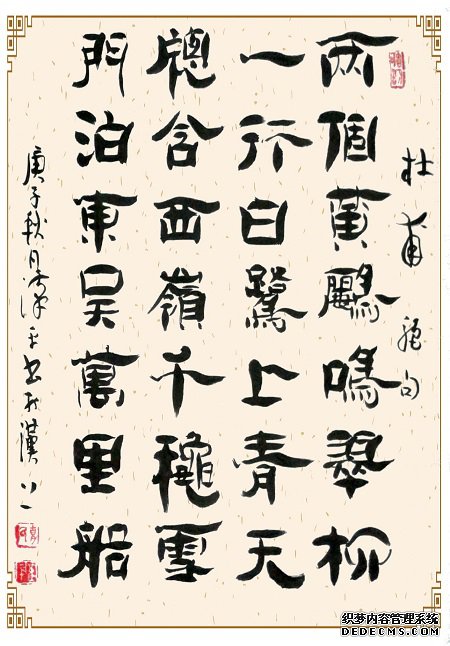 杜甫 絶句
两個黄鸝鳴翠柳
一行白鷺上青天
牕含西嶺千穐雪
門泊東吴萬里船
庚子秋月平书於漢上
织梦内容管理系统
DEDECMS.COM